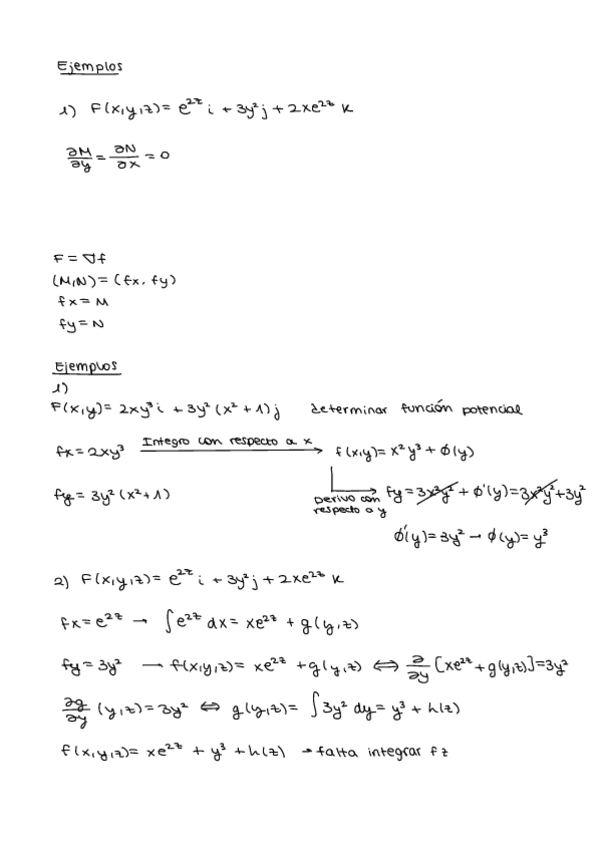 Ejemplos
1) F(x,y,z)= e^{2z} i + 3y² j + 2xe^{2z} k
∂M/∂y = ∂N/∂x = 0
F = ∇f
(M,N) = (fx, fy)
fx = M
fy = N
Ejemplos
1)
F(x,y)= 2xy³ i + 3y² (x² + 1) j determinar función potencial
fx = 2xy³ Integro con respecto a x → f(x,y)= x² y³ + φ(y)
fy = 3y² (x² + 1) Derivo con respecto a y → fy = 3x²y² + φ'(y) = 3x²y² + 3y²
φ'(y) = 3y² → φ(y) = y³
2) F(x,y,z)= e^{2z} i + 3y² j + 2xe^{2z} k
fx = e^{2z} → ∫e^{2z} dx = xe^{2z} + g(y,z)
fy = 3y² → f(x,y,z)= xe^{2z} + g(y,z) ⇔ ∂/∂y [xe^{2z} + g(y,z)] = 3y²
∂g/∂y (y,z) = 3y² ⇔ g(y,z) = ∫3y² dy = y³ + h(z)
f(x,y,z)= xe^{2z} + y³ + h(z) → falta integrar fz